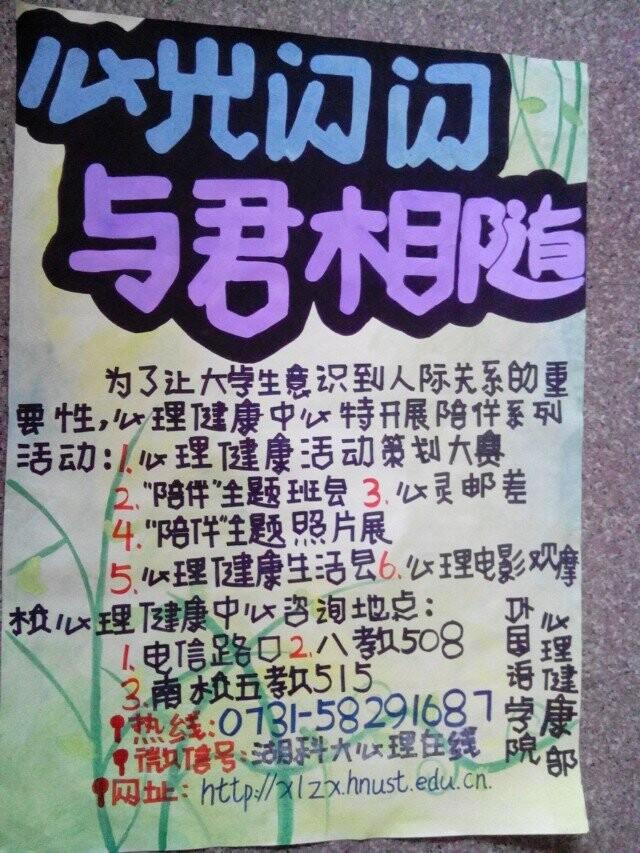 心光闪闪
与君相随
为了让大学生意识到人际关系的重
要性,心理健康中心特开展陪伴系列
活动:1.心理健康活动策划大赛
2."陪伴"主题班会 3.心灵邮差
4."陪伴"主题照片展
5.心理健康生活会6.心理电影观摩
校心理健康中心咨询地点:
1.电信路口2.八教508
3.南校五教515
热线:0731-58291687
微信号:湖科大心理在线
网址:http://xlzx.hnust.edu.cn.
外国语学院
心理健康部